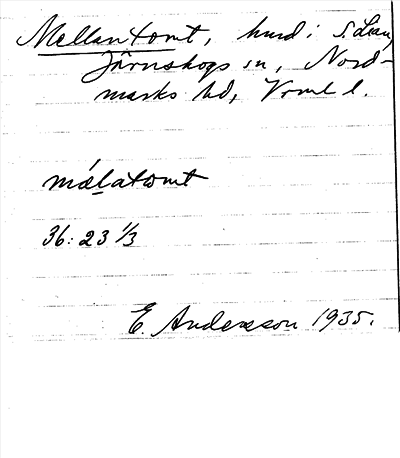 Mellantomt, hmd i S. Lian,
Järnskogs sn, Nord-
marks hd, Vrml l.
mǽlatomt
36: 23 1/3
E. Andersson 1935.